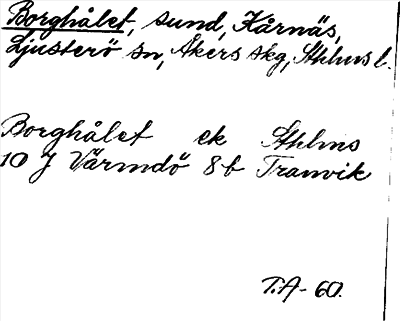 Borghålet, sund, Kårnäs,
Ljusterö sn, Åkers skg, Sthlms l.
Borghålet ek Sthlms
10 J Värmdö 8b Tranvik
T.A-60.